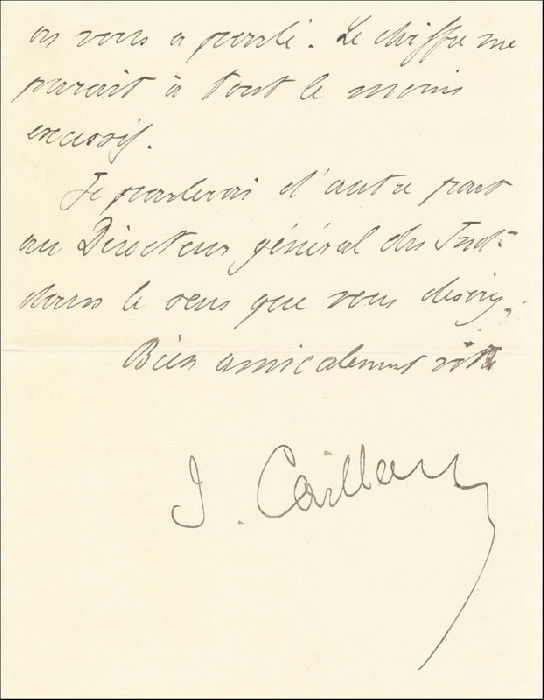 on vous a parlé. Le chiffre me
paraît à tout le moins
excessif.
Je parlerai d'autre part
au Directeur général des
dans le sens que vous desirez.
Bien amicalement vôtre
J. Caillaux